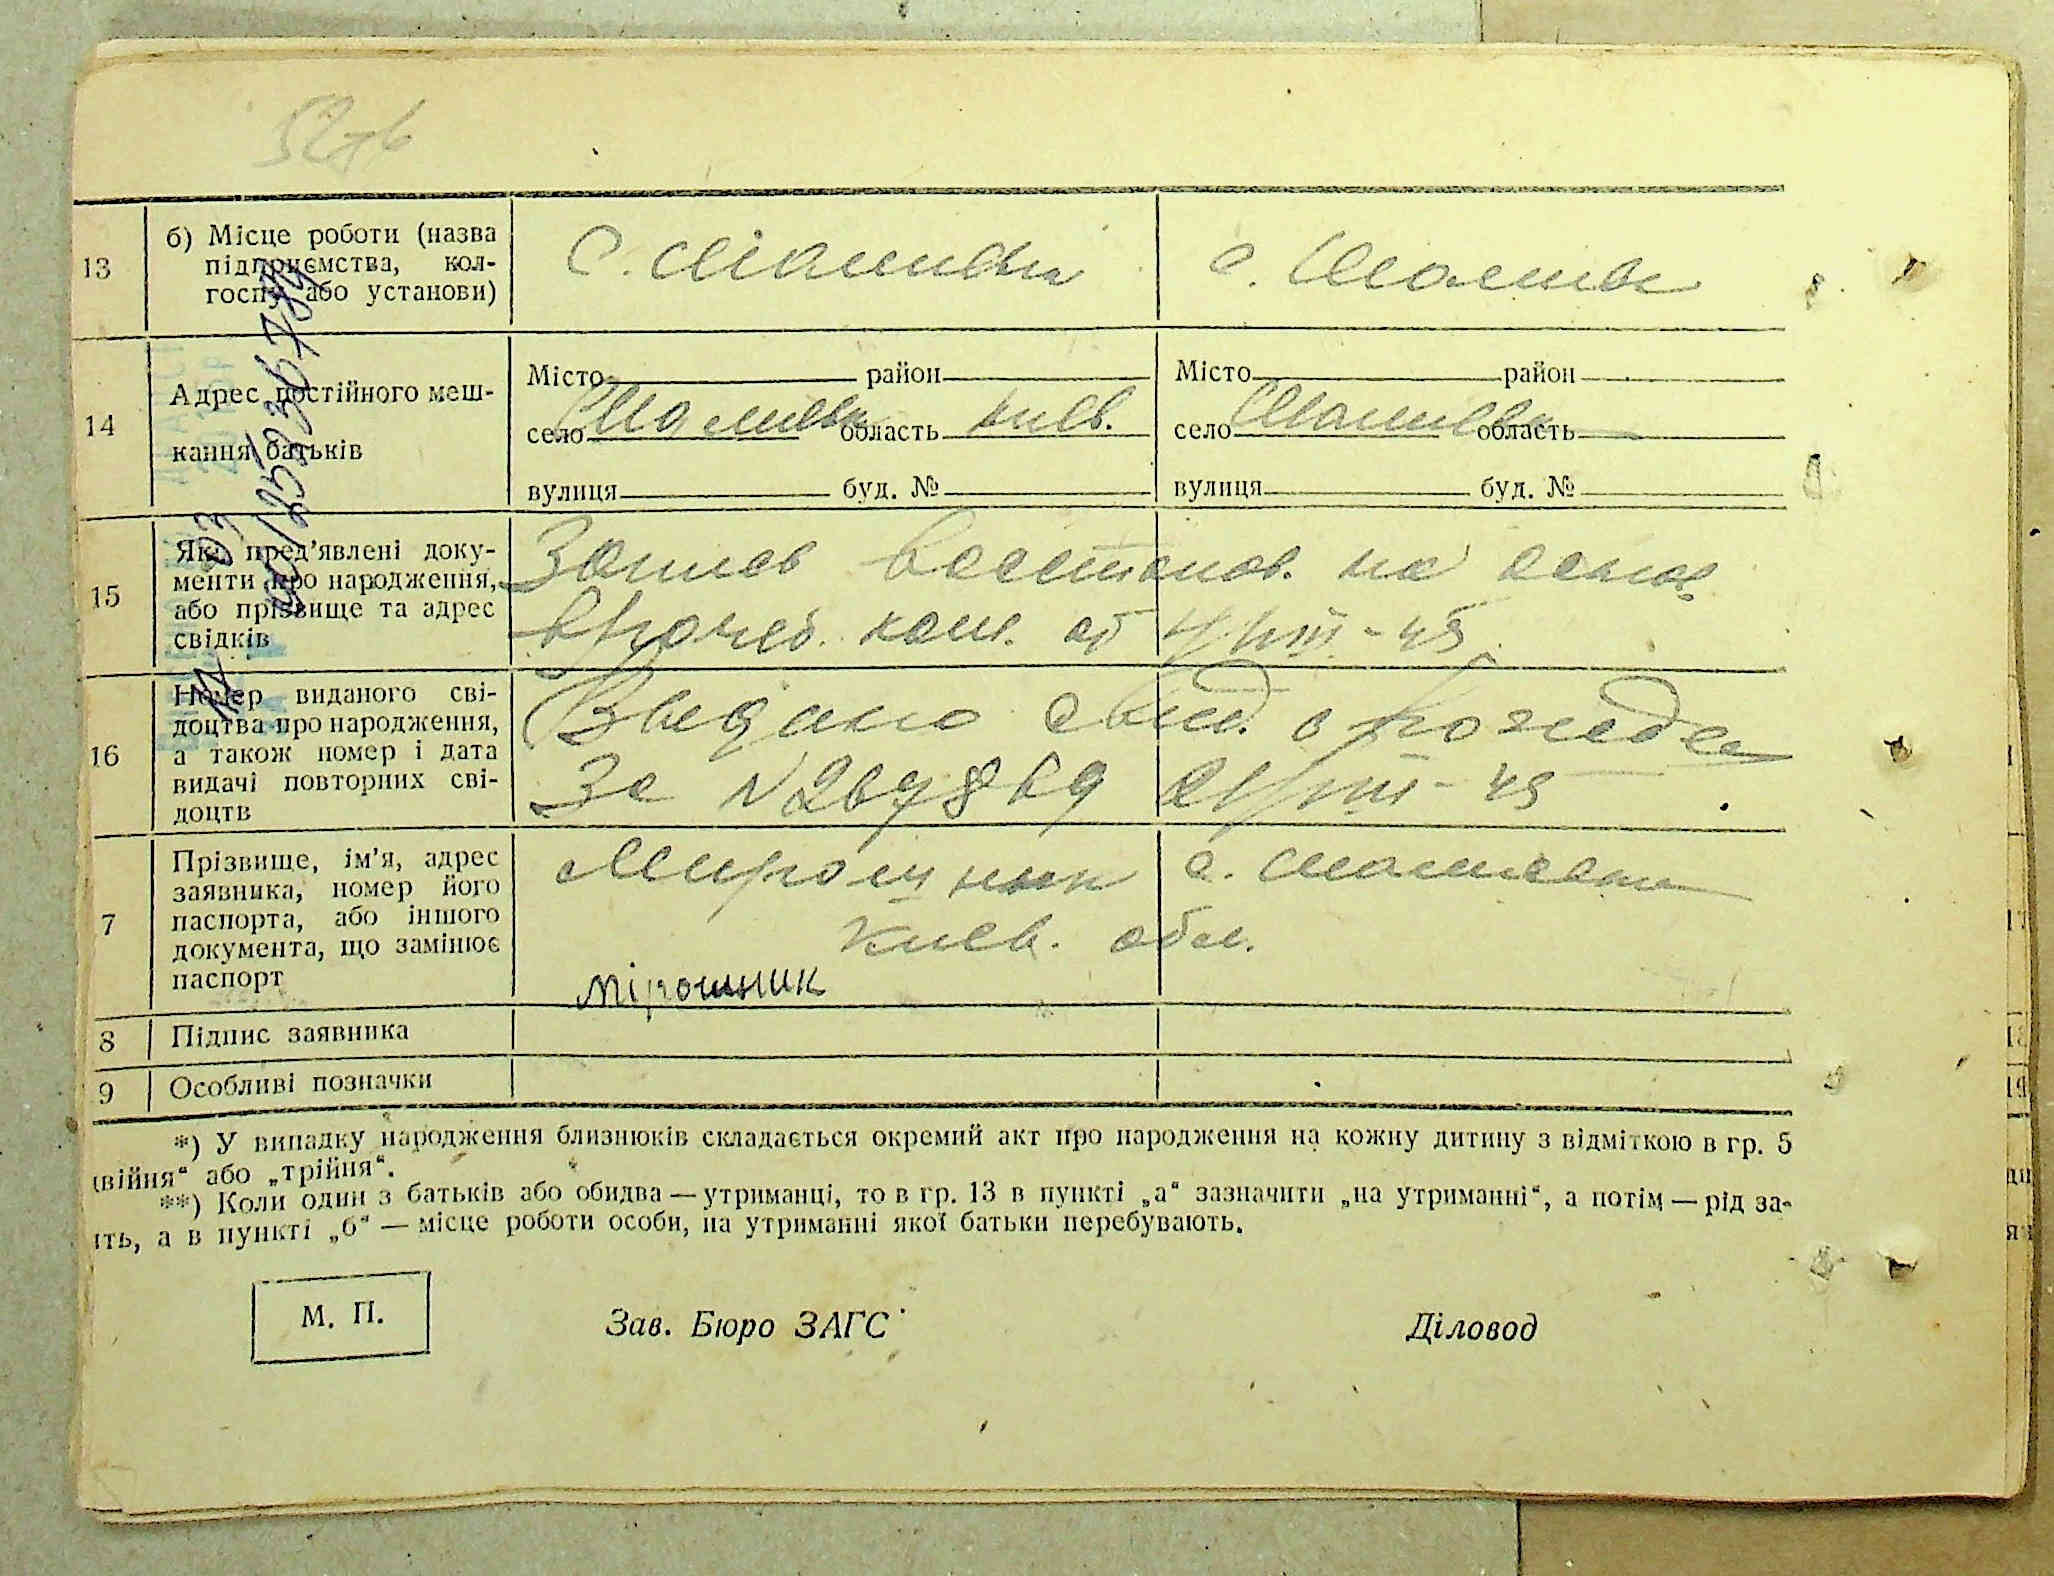 13
б) Місце роботи (назва
підприємства, кол-
госпу або установи)
с.
с.
14
Адрес постійного меш-
кання батьків
Місто район
село область Киев.
вулиця буд. №
Місто район
село область
вулиця буд. №
15
Які пред'явлені доку-
менти про народження,
або прізвище та адрес
свідків
Запись восстанов. на основ.
врачеб. ком. от VIII-45
16
Номер виданого сві-
доцтва про народження,
а також номер і дата
видачі повторних сві-
доцтв
Выдано свид. о рожден
За № VIII-45
7
Прізвище, ім'я, адрес
заявника, номер його
паспорта, або іншого
документа, що замінює
паспорт
Мирошник с.
Киев. обл.
Мірошник
8
Підпис заявника
9
Особливі позначки
*) У випадку народження близнюків складається окремий акт про народження на кожну дитину з відміткою в гр. 5
війня" або „трійня".
**) Коли один з батьків або обидва — утриманці, то в гр. 13 в пункті „а" зазначити „на утриманні", а потім — рід за-
ть, а в пункті „б" — місце роботи особи, на утриманні якої батьки перебувають.
М. П.
Зав. Бюро ЗАГС
Діловод